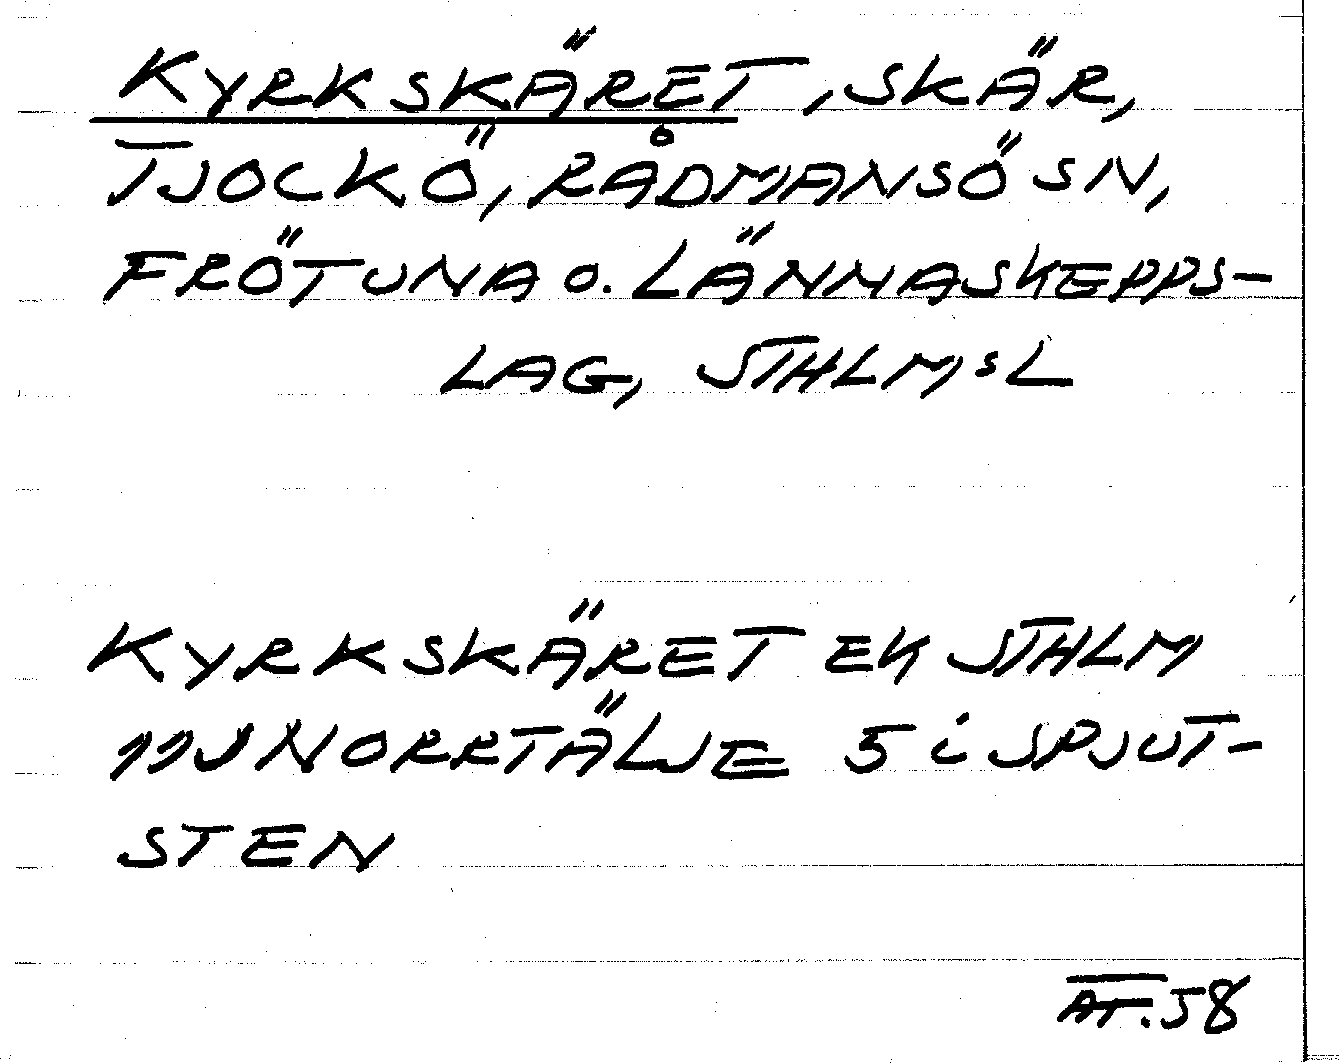 KYRKSKÄRET, SKÄR,
TJOCKÖ, RÅDMANSÖ SN,
FRÖTUNA O. LÄNNASKEPPS-
LAG, STHLMSL
KYRKSKÄRET EK STHLM
11J NORRTÄLJE 5 i SPJUT-
STEN
AT. 58